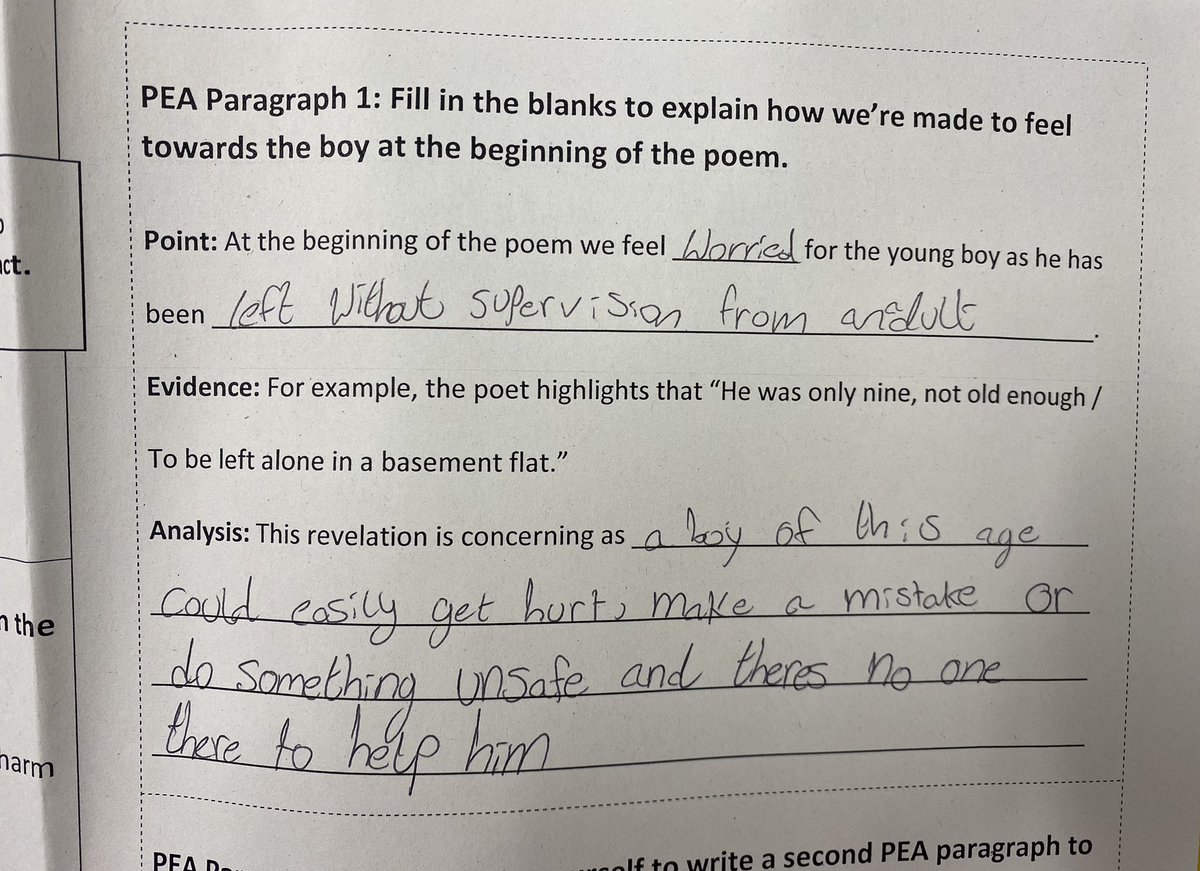 PEA Paragraph 1: Fill in the blanks to explain how we're made to feel
towards the boy at the beginning of the poem.
Point: At the beginning of the poem we feel Worried for the young boy as he has
been left Without supervision from an adult.
Evidence: For example, the poet highlights that "He was only nine, not old enough /
To be left alone in a basement flat."
Analysis: This revelation is concerning as a boy of this age
could easily get hurt, make a mistake or
do something unsafe and theres no one
there to help him
the
harm
PEA
to write a second PEA paragraph to